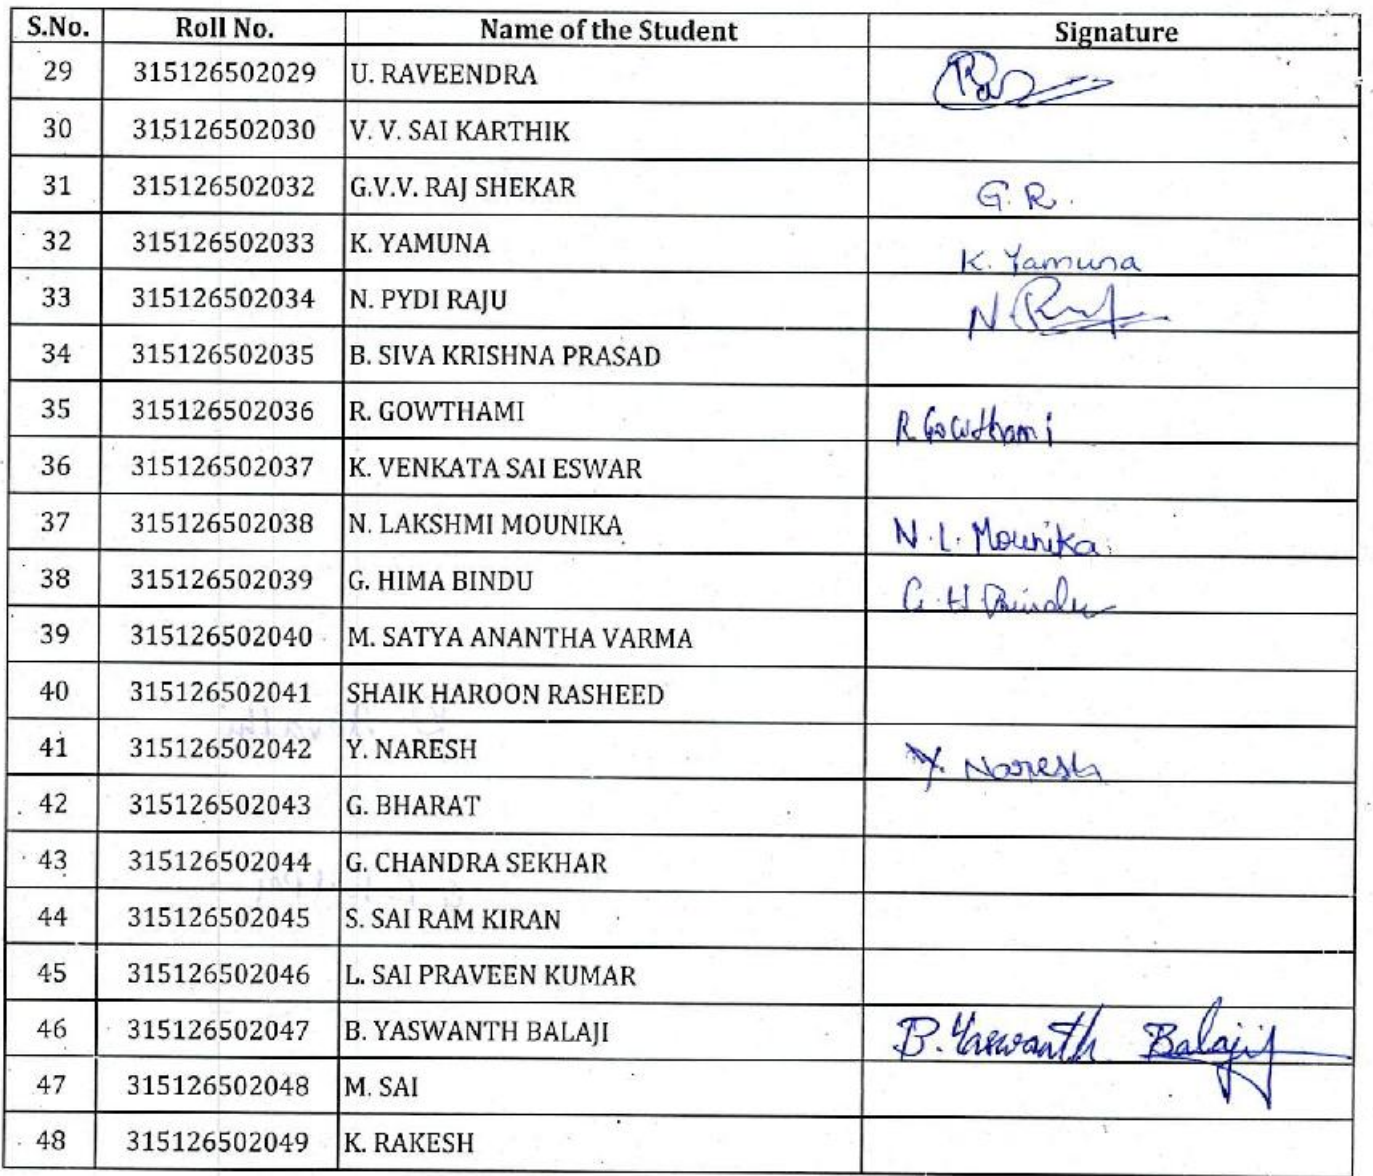 S.No. Roll No. Name of the Student Signature
29 315126502029 U. RAVEENDRA
30 315126502030 V. V. SAI KARTHIK
31 315126502032 G.V.V. RAJ SHEKAR G. R.
32 315126502033 K. YAMUNA K. Yamuna
33 315126502034 N. PYDI RAJU N.
34 315126502035 B. SIVA KRISHNA PRASAD
35 315126502036 R. GOWTHAMI R. Gowthami
36 315126502037 K. VENKATA SAI ESWAR
37 315126502038 N. LAKSHMI MOUNIKA N. L. Mounika.
38 315126502039 G. HIMA BINDU G. H. Bindu
39 315126502040 M. SATYA ANANTHA VARMA
40 315126502041 SHAIK HAROON RASHEED
41 315126502042 Y. NARESH Y. Naresh
42 315126502043 G. BHARAT
43 315126502044 G. CHANDRA SEKHAR
44 315126502045 S. SAI RAM KIRAN
45 315126502046 L. SAI PRAVEEN KUMAR
46 315126502047 B. YASWANTH BALAJI B. Yaswanth Balaji
47 315126502048 M. SAI
48 315126502049 K. RAKESH